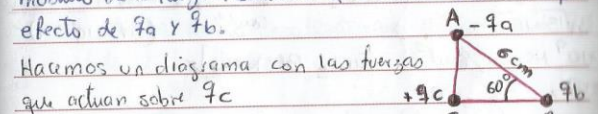 efecto de qa y qb.
Hacemos un diagrama con las fuerzas
que actuan sobre qc
A -qa
6cm
+qc 60° qb